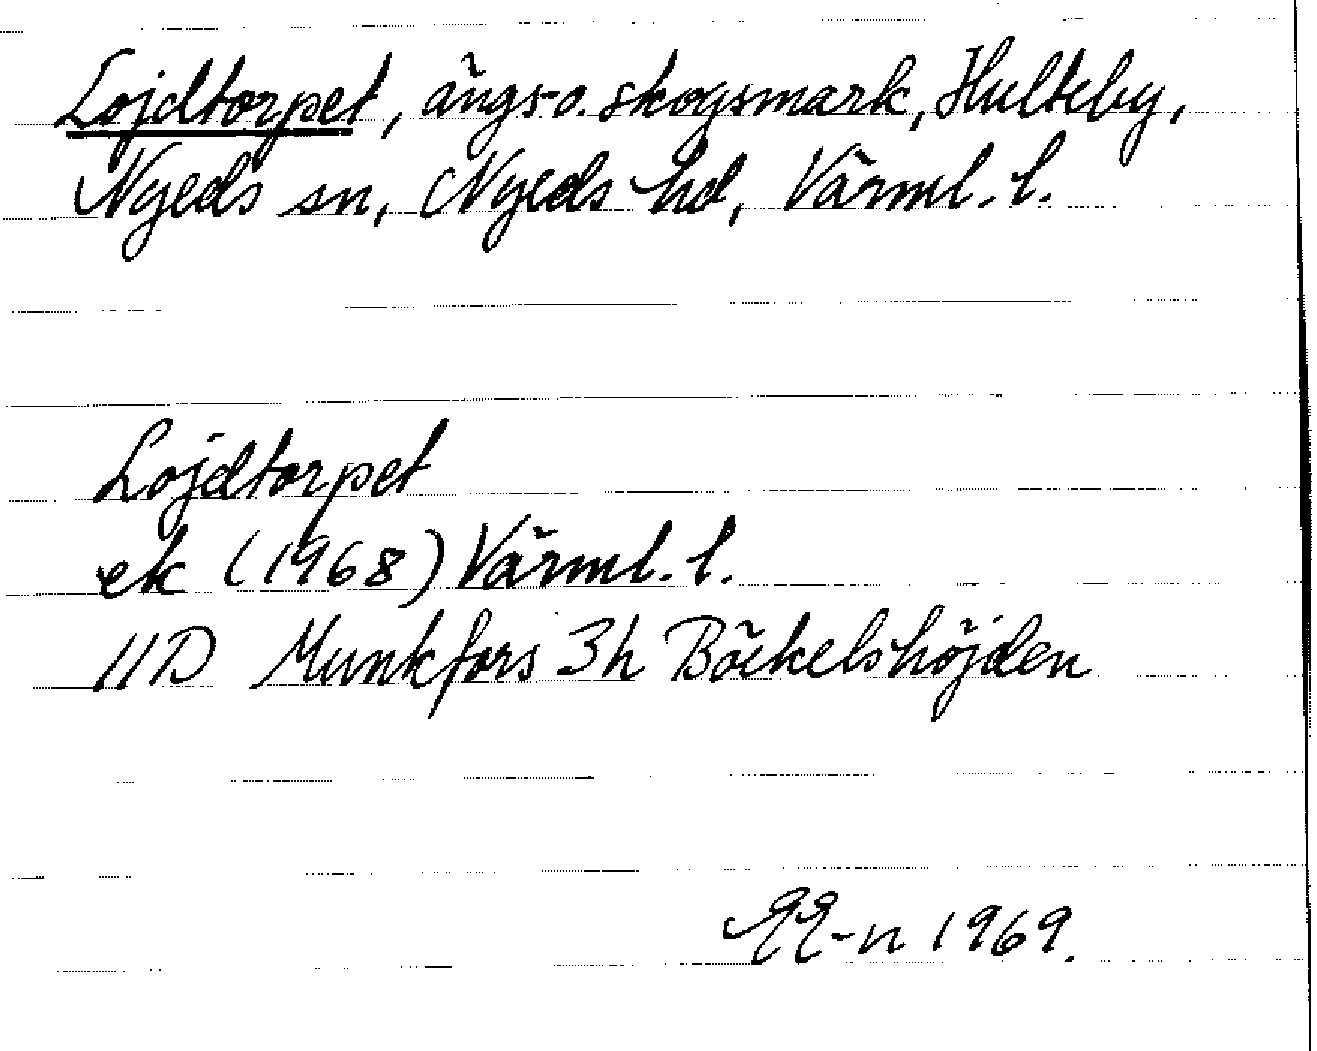 Lojdtorpet, ängs- o. skogsmark, Hulteby,
Nyeds sn, Nyeds hd, Värml. l.
Lojdtorpet
ek (1968) Värml. l.
11D Munkfors 3h Böckelshöjden
1969.